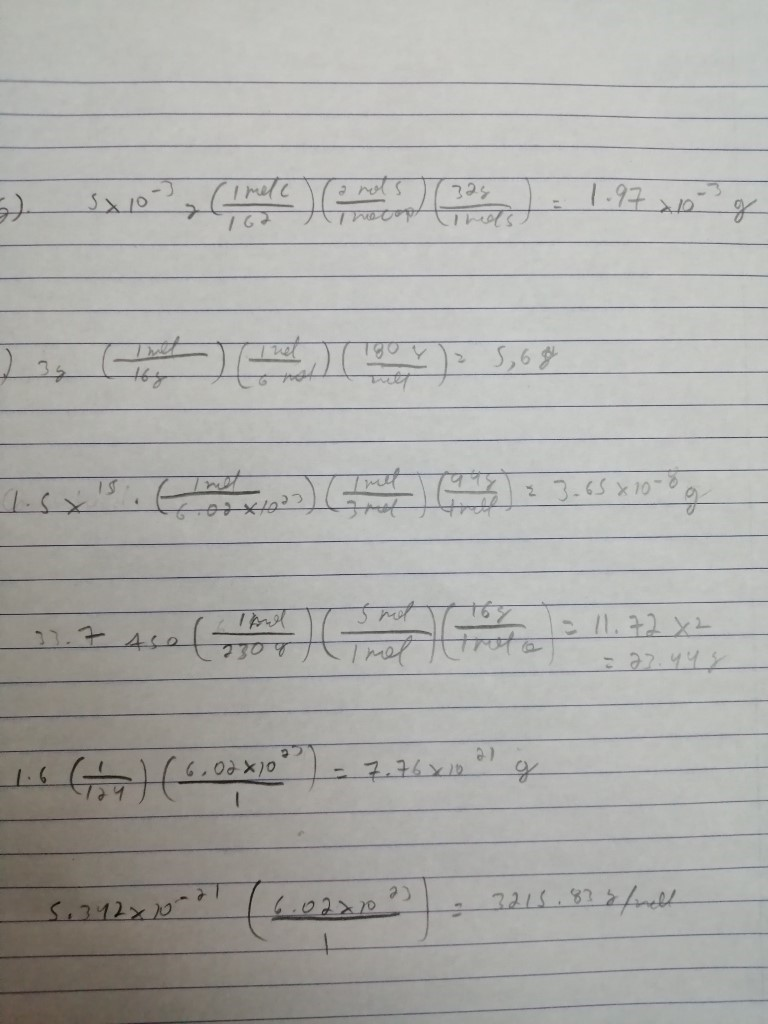 5). 5×10⁻³ g (1 mol C / 162) (2 mol S / 1 mol) (32 g / 1 mol S) = 1.97 ×10⁻³ g
) 3g (1 mol / 16g) (1 mol / 6 mol) (180 g / mol) = 5,6 g
1.5 × ¹⁵ . (1 mol / 6.02 ×10²³) (1 mol / 3 mol) (44g / 1 mol) = 3.65 ×10⁻⁸ g
33.7 (1 mol / 230 g) (5 mol / 1 mol) (16 g / 1 mol) = 11.72 ×2
= 23.44 g
1.6 (1 / 124) (6.02×10²³ / 1) = 7.76×10²¹ g
5.342×10⁻²¹ (6.02×10²³ / 1) = 3215.83 g/mol